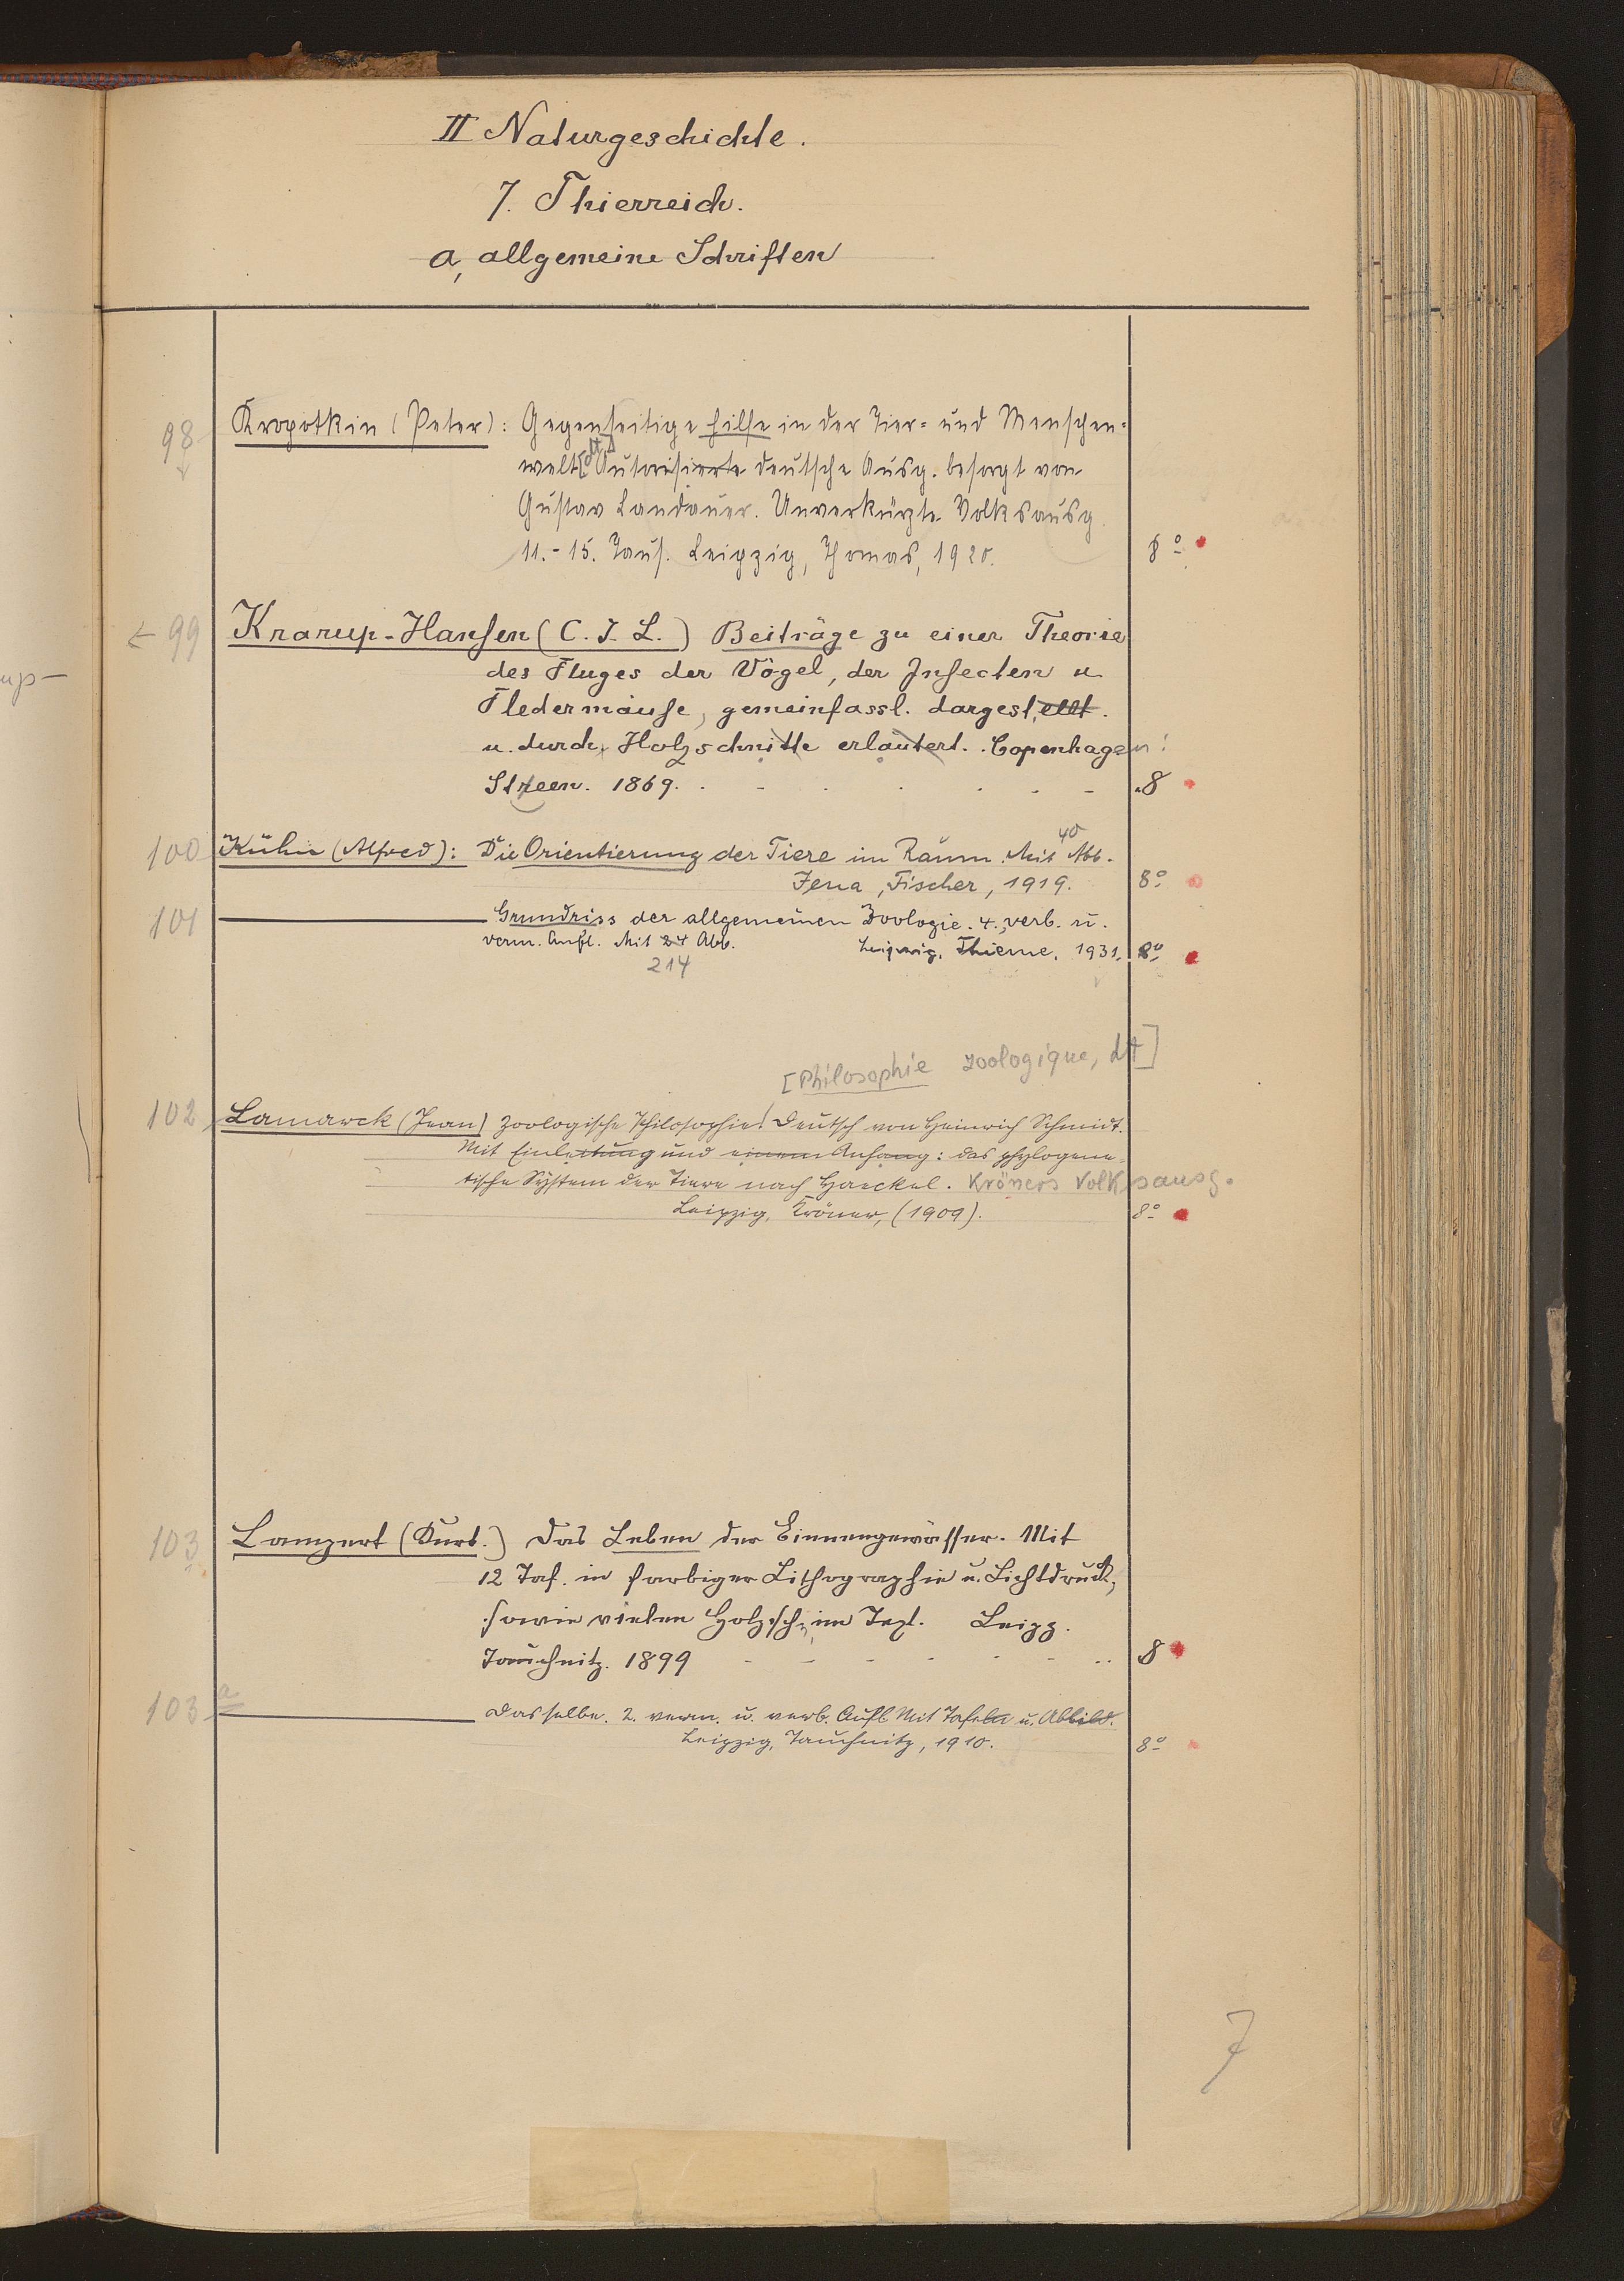 II Naturgeschichte.
7. Thierreich.
a, allgemeine Schriften
98 Kropotkin (Peter): Gegenseitige Hilfe in der Tier= und Menschen=
welt [dt] Autorisierte deutsche Ausg. besorgt von
Gustav Landauer. Unverkürzte Volksausg.
11.-15. Taus. Leipzig, Thomas, 1920. 8°
← 99 Krarup-Hansen (C. J. L.) Beiträge zu einer Theorie
up-
des Fluges der Vögel, der Insecten u
Fledermäuse, gemeinfassl. dargestellt.
u. durch Holzschnitte erläutert. Copenhagen:
Steen. 1869. 8
100 Kühn (Alfred): Die Orientierung der Tiere im Raum. Mit 40 Abb.
Jena, Fischer, 1919. 8°
101 Grundriss der allgemeinen Zoologie. 4., verb. u.
verm. Aufl. Mit 24 Abb. Leipzig, Thieme, 1931. 8°
214
[Philosophie zoologique, dt]
102 Lamarck (Jean) Zoologische Philosophie. Deutsch von Heinrich Schmidt.
Mit Einleitung und einem Anhang: das phylogene=
tische System der Tiere nach Haeckel. Kröners Volksausg.
Leipzig, Kröner, (1909). 8°
103 Lampert (Kurt.) Das Leben der Binnengewässer. Mit
12 Taf. in farbiger Lithographie u. Lichtdruck,
sowie vielen Holzsch. im Text. Leipz.
Tauchnitz. 1899 8
103 a Dasselbe. 2. verm. u. verb. Aufl. Mit Tafeln u. Abbild.
Leipzig, Tauchnitz, 1910. 8°
7